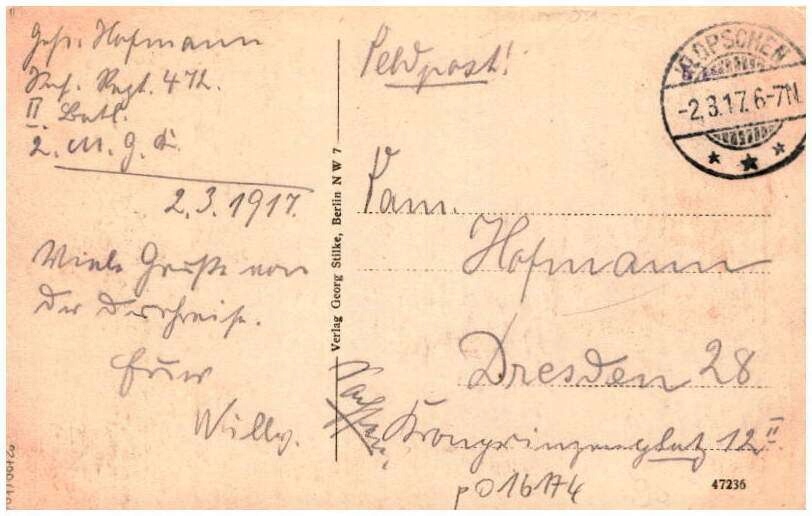 Gefr. Hofmann
Inf. Regt. 472.
II. Batl.
2. M. G. K.
2.3.1917.
Viele Grüße von
der Durchreise.
Euer
Willy.
Verlag Georg Stilke, Berlin NW 7
Feldpost!
KLOPSCHEN
-2.3.17.6-7N
Fam.
Hofmann
Dresden 28
Sachsen.
Kronprinzenplatz 12 II
p016174
47236